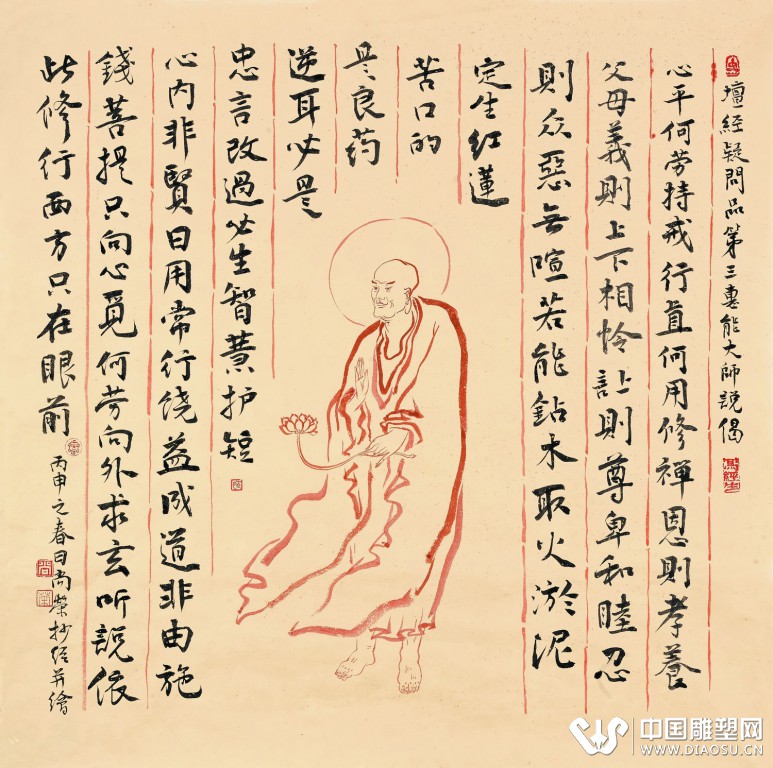 壇經疑問品第三惠能大師説偈
心平何劳持戒行直何用修禅恩則孝養
父母義則上下相怜让則尊卑和睦忍
則众惡无喧若能鉆木取火淤泥
定生红蓮
苦口的
是良药
逆耳必是
忠言改過必生智慧护短
心内非賢日用常行饶益成道非由施
錢菩提只向心覓何劳向外求玄听説依
此修行西方只在眼前
丙申之春日尚荣抄经并繪
中国雕塑网
WWW.DIAOSU.CN